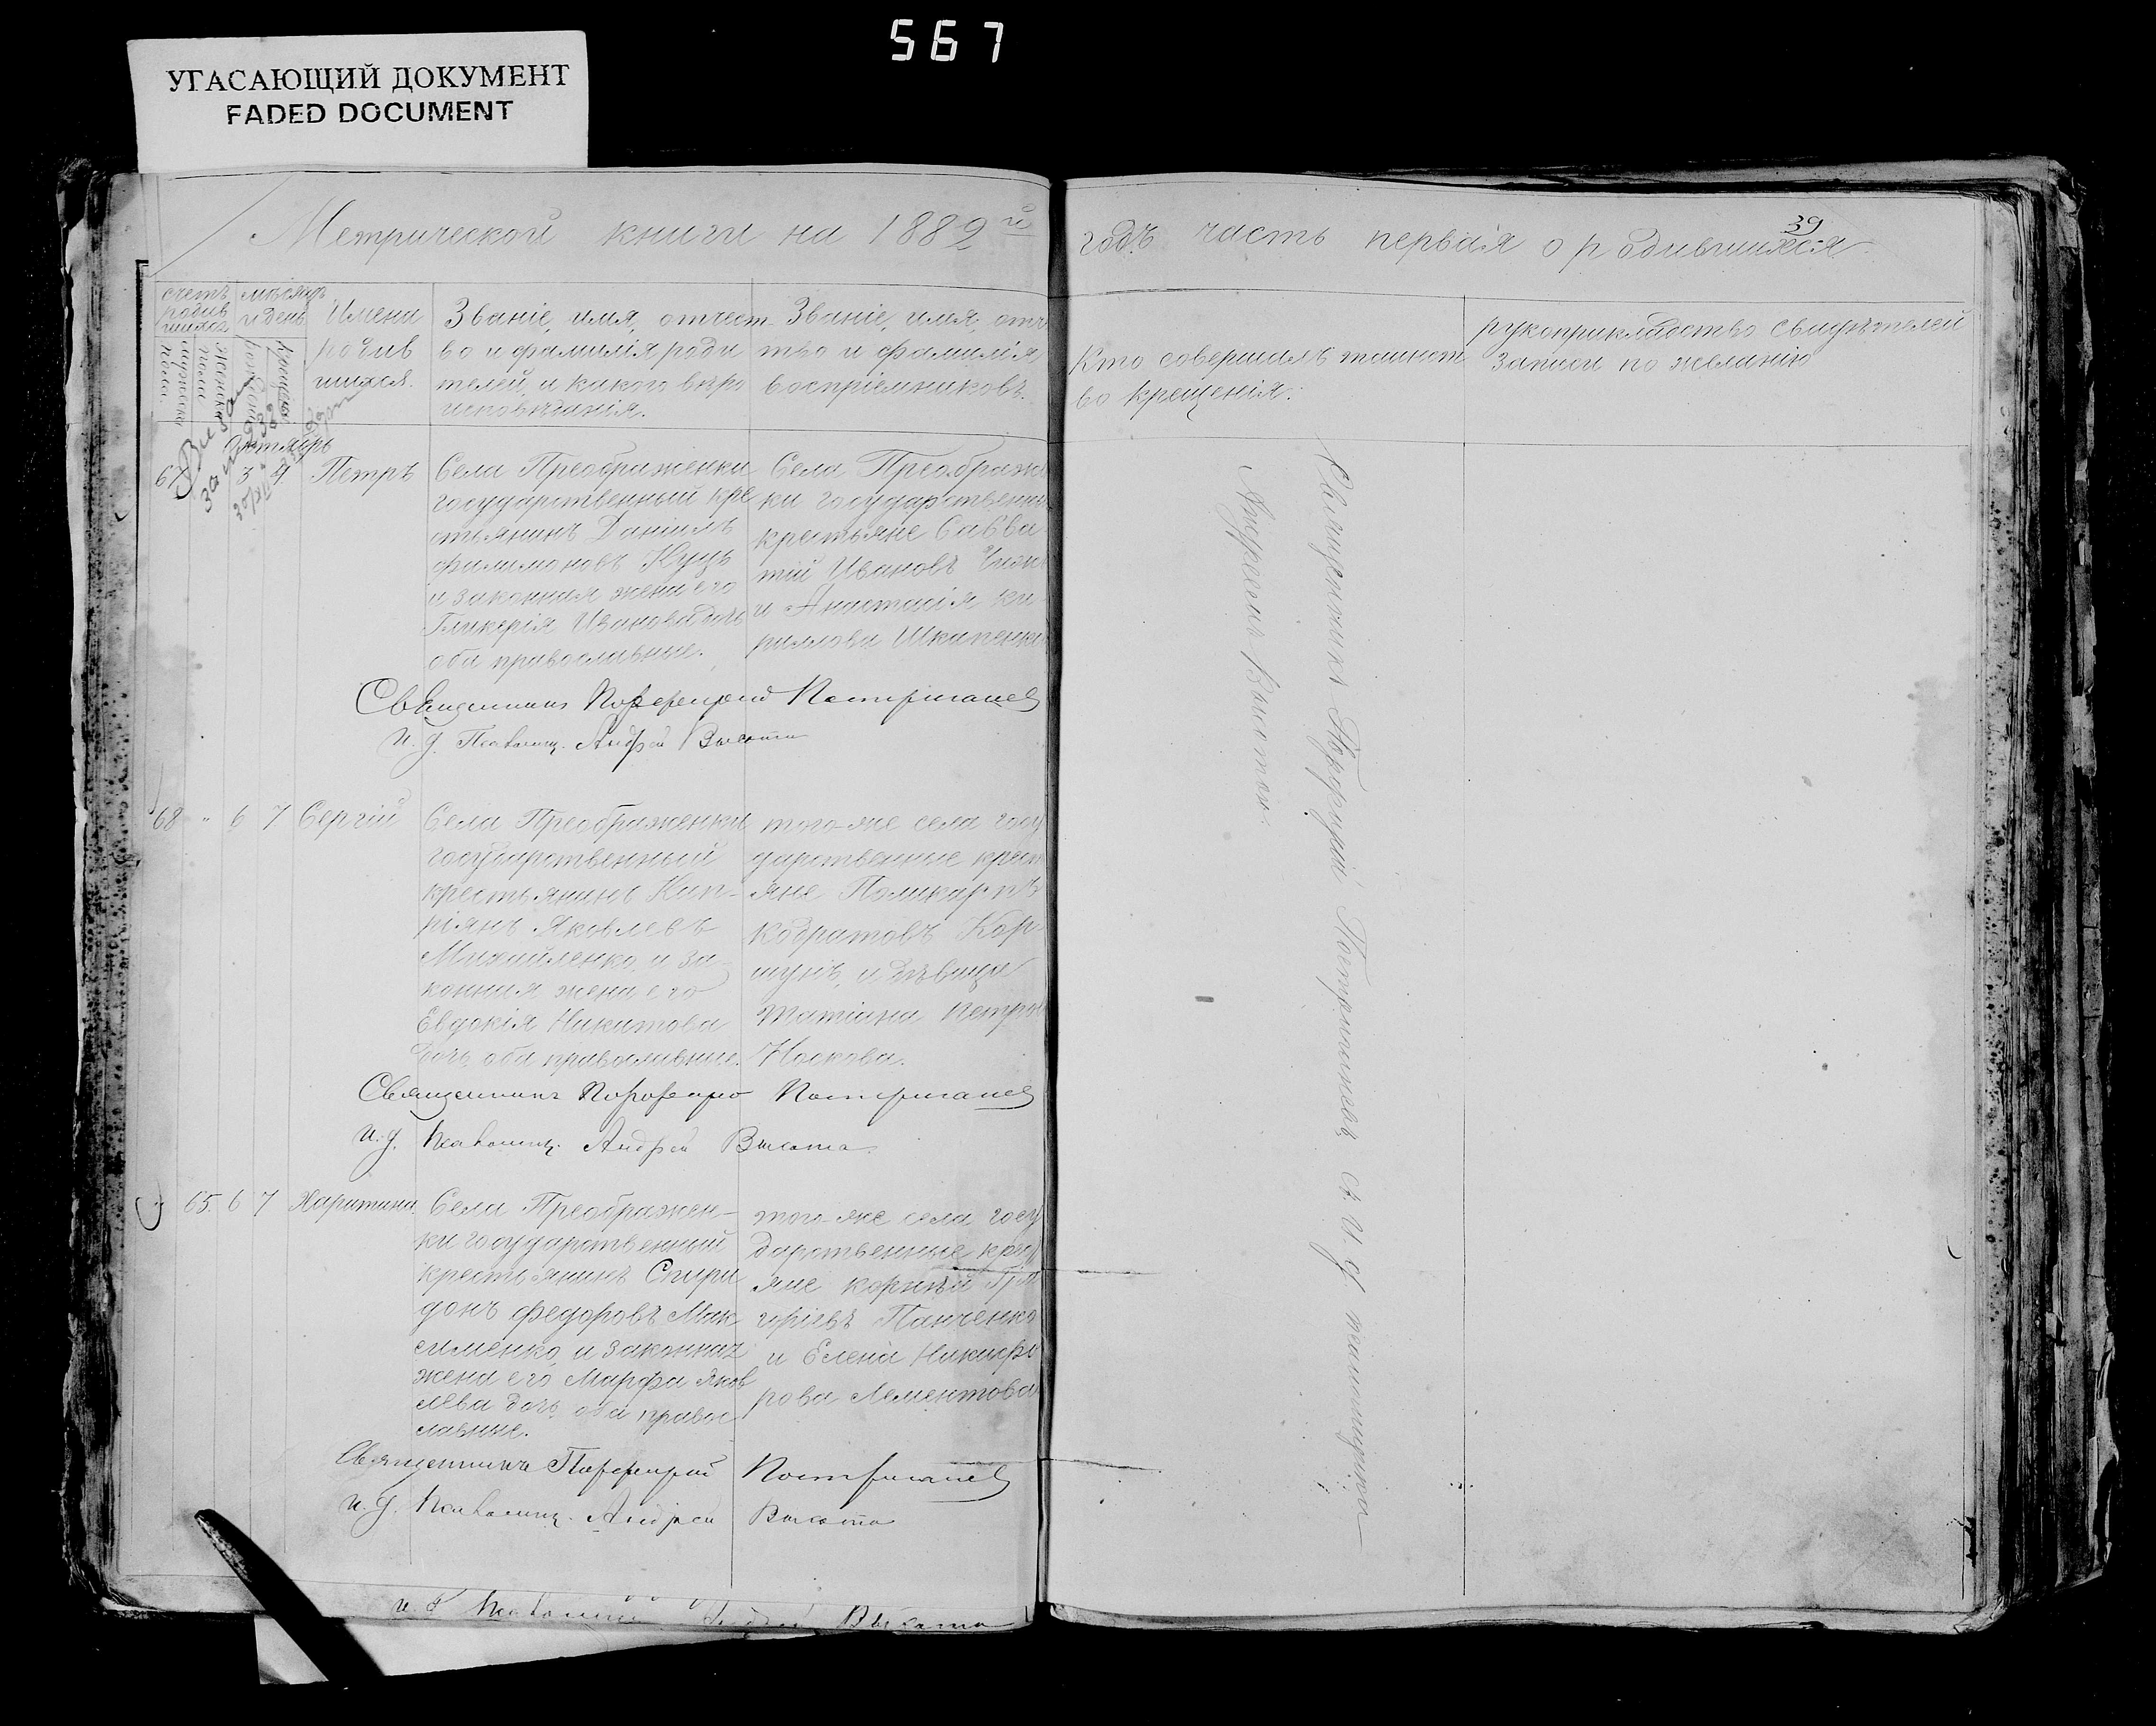 567
УГАСАЮЩИЙ ДОКУМЕНТ
FADED DOCUMENT
Метрической книги на 1889й
годъ часть первая о родившихся
39
счетъ родив шихся
мужеска пола
женска пола
мѣсяцъ и день
крещенія
Имена родив шихся.
Званіе, имя, отчест
во и фамилія роди
телей, и какого вѣро
исповѣданія.
Званіе, имя, отче
тво и фамилія
воспріемниковъ.
Кто совершалъ таинст
во крещенія.
рукоприкладство свидѣтелей
записи по желанію
67
3 4
Петръ
Села Преображенки
государственный кре
стьянинъ Даніилъ
Филимоновъ Куць
и законная жена его
Гликерія Иванова дочь
оба православные.
Села Преображен
ки государственны
крестьяне Савва
тій Ивановъ
и Анастасія Ки
риллова Шкапенко
Священникъ Порфирій Постригачев
и. д. Псаломщ. Андрей Высота
68 " 6 7 Сергій
Села Преображенки
государственный
крестьянинъ Кип-
ріянъ Яковлевъ
Михайленко, и за-
конная жена его
Евдокія Никитова
дочь, оба православные.
того-же села госу
дарственные крест
яне Поликарпъ
Кодратовъ Кор-
шунъ, и дѣвица
Татіана Петро
Носкова.
Священникъ Порфирій Постригачев
и. д. Псаломщ. Андрей Высота
65. 6 7 Харитина.
Села Преображен-
ки государственный
крестьянинъ Спири
донъ Федоровъ Мак
сименко, и законная
жена его Марфа Яков
лева дочь, оба правос
лавные.
того-же села госу
дарственные крест
яне Корнѣй Гри
горіевъ Панченко
и Елена Никифо
рова Лементова
Священникъ Порфирій Постригачев
и. д. Псаломщ. Андрей Высота
и. д. Псаломщ. Андрей Высота
Священникъ Порфирій Постригачевъ съ и. д. псаломщика
Андреемъ Высотою.